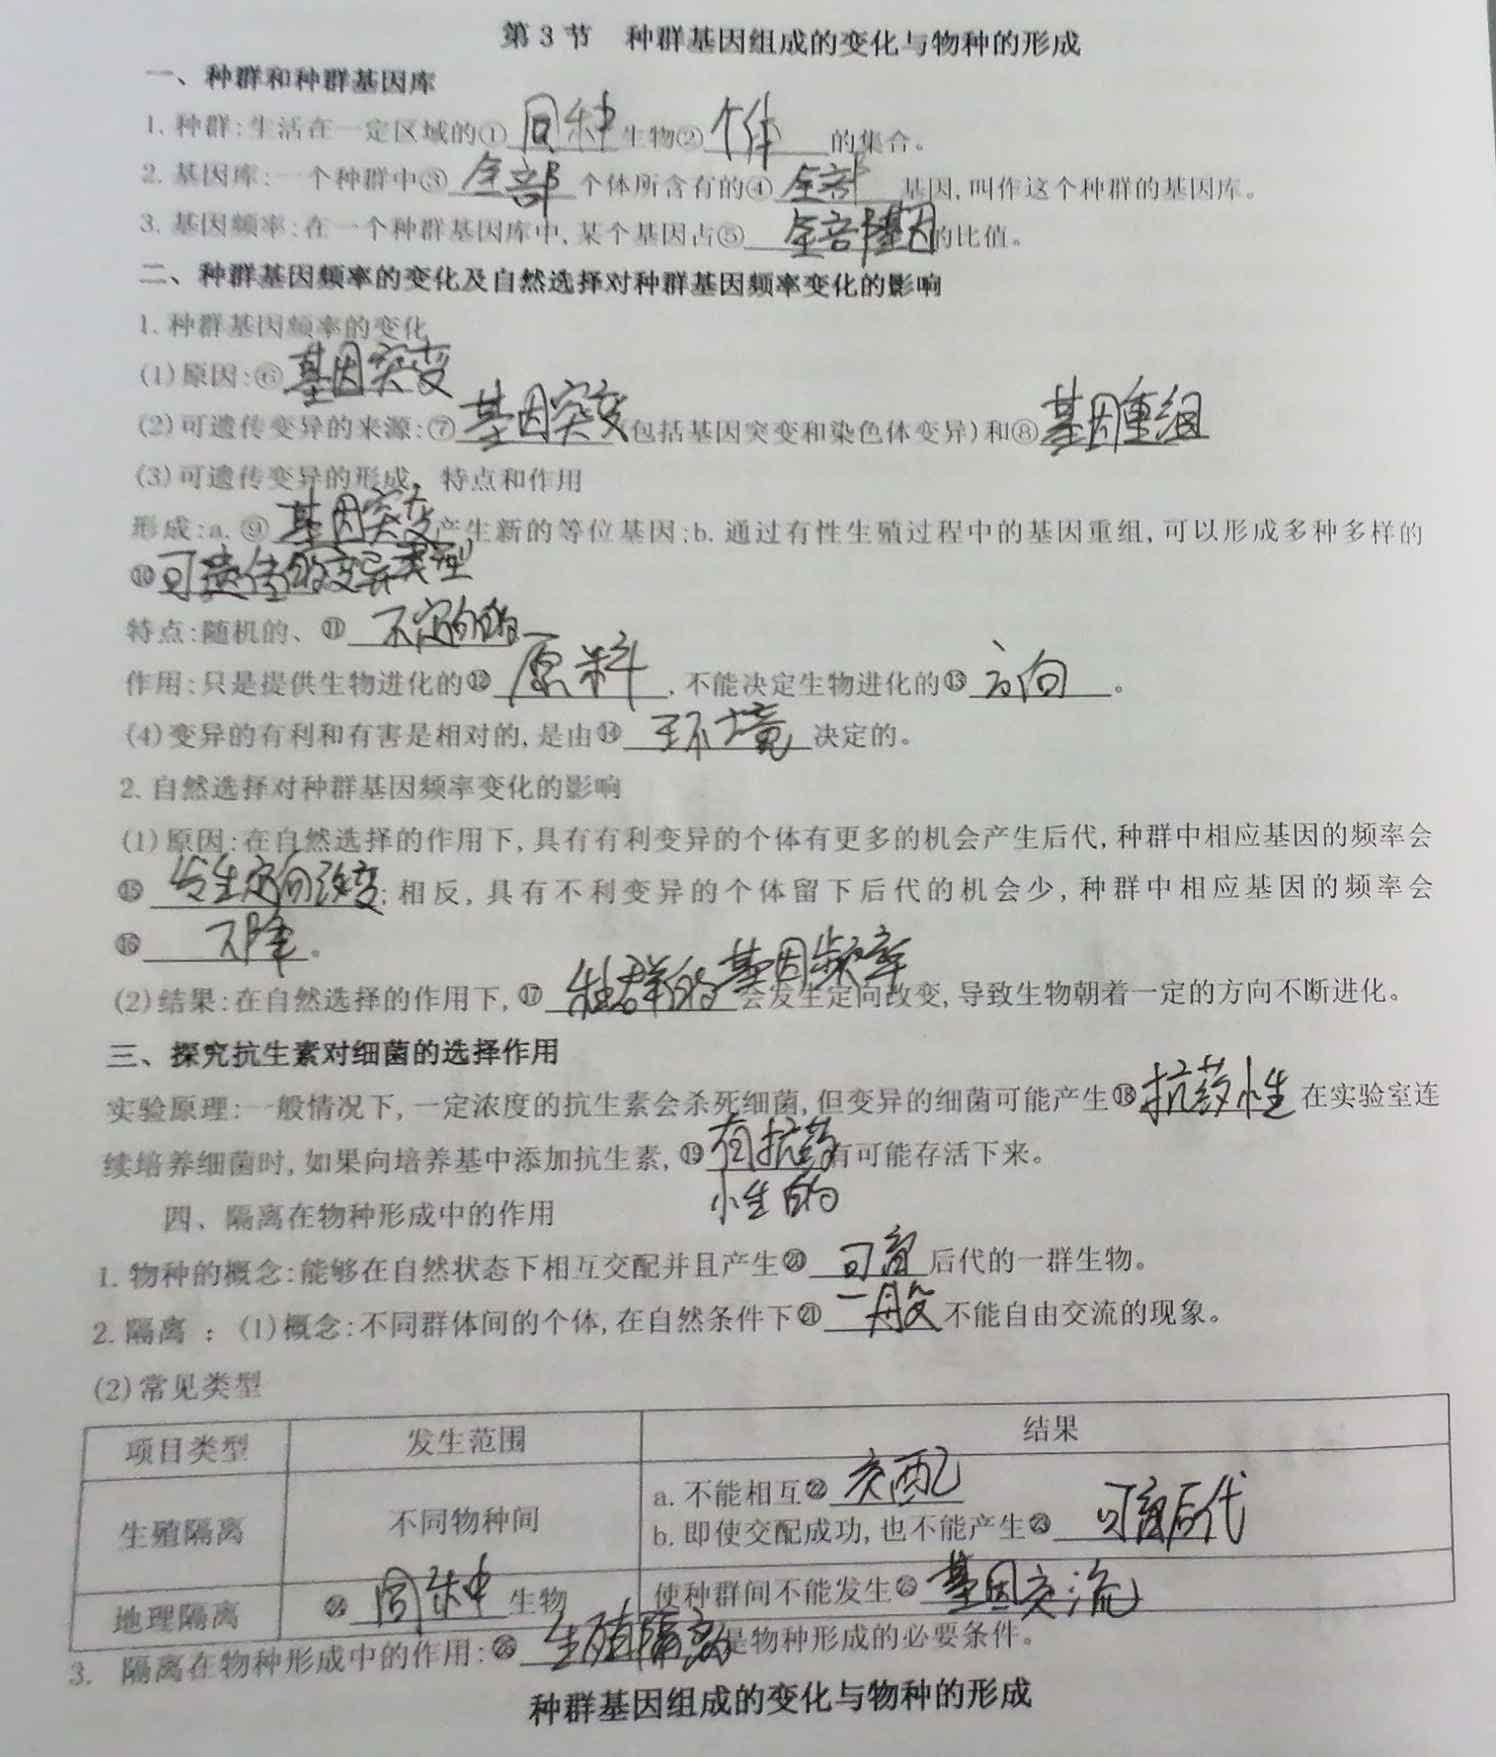 第3节 种群基因组成的变化与物种的形成
一、种群和种群基因库
1. 种群:生活在一定区域的①同种生物②个体的集合。
2. 基因库:一个种群中③全部个体所含有的④全部基因,叫作这个种群的基因库。
3. 基因频率:在一个种群基因库中,某个基因占⑤全部等位基因的比值。
二、种群基因频率的变化及自然选择对种群基因频率变化的影响
1. 种群基因频率的变化
(1)原因:⑥基因突变
(2)可遗传变异的来源:⑦基因突变(包括基因突变和染色体变异)和⑧基因重组
(3)可遗传变异的形成、特点和作用
形成:a.⑨基因突变产生新的等位基因;b.通过有性生殖过程中的基因重组,可以形成多种多样的
⑩可遗传的变异类型
特点:随机的、⑪不定向的
作用:只是提供生物进化的⑫原料,不能决定生物进化的⑬方向。
(4)变异的有利和有害是相对的,是由⑭环境决定的。
2. 自然选择对种群基因频率变化的影响
(1)原因:在自然选择的作用下,具有有利变异的个体有更多的机会产生后代,种群中相应基因的频率会
⑮发生定向改变;相反,具有不利变异的个体留下后代的机会少,种群中相应基因的频率会
⑯下降。
(2)结果:在自然选择的作用下,⑰种群的基因频率会发生定向改变,导致生物朝着一定的方向不断进化。
三、探究抗生素对细菌的选择作用
实验原理:一般情况下,一定浓度的抗生素会杀死细菌,但变异的细菌可能产生⑱抗药性 在实验室连
续培养细菌时,如果向培养基中添加抗生素,⑲有抗药有可能存活下来。
性的
四、隔离在物种形成中的作用
1. 物种的概念:能够在自然状态下相互交配并且产生⑳可育后代的一群生物。
2. 隔离 :(1)概念:不同群体间的个体,在自然条件下㉑一般不能自由交流的现象。
(2)常见类型
项目类型 发生范围 结果
生殖隔离 不同物种间 a. 不能相互㉒交配
b. 即使交配成功,也不能产生㉓可育后代
地理隔离 ㉔同种生物 使种群间不能发生㉕基因交流
3. 隔离在物种形成中的作用:㉖生殖隔离是物种形成的必要条件。
种群基因组成的变化与物种的形成